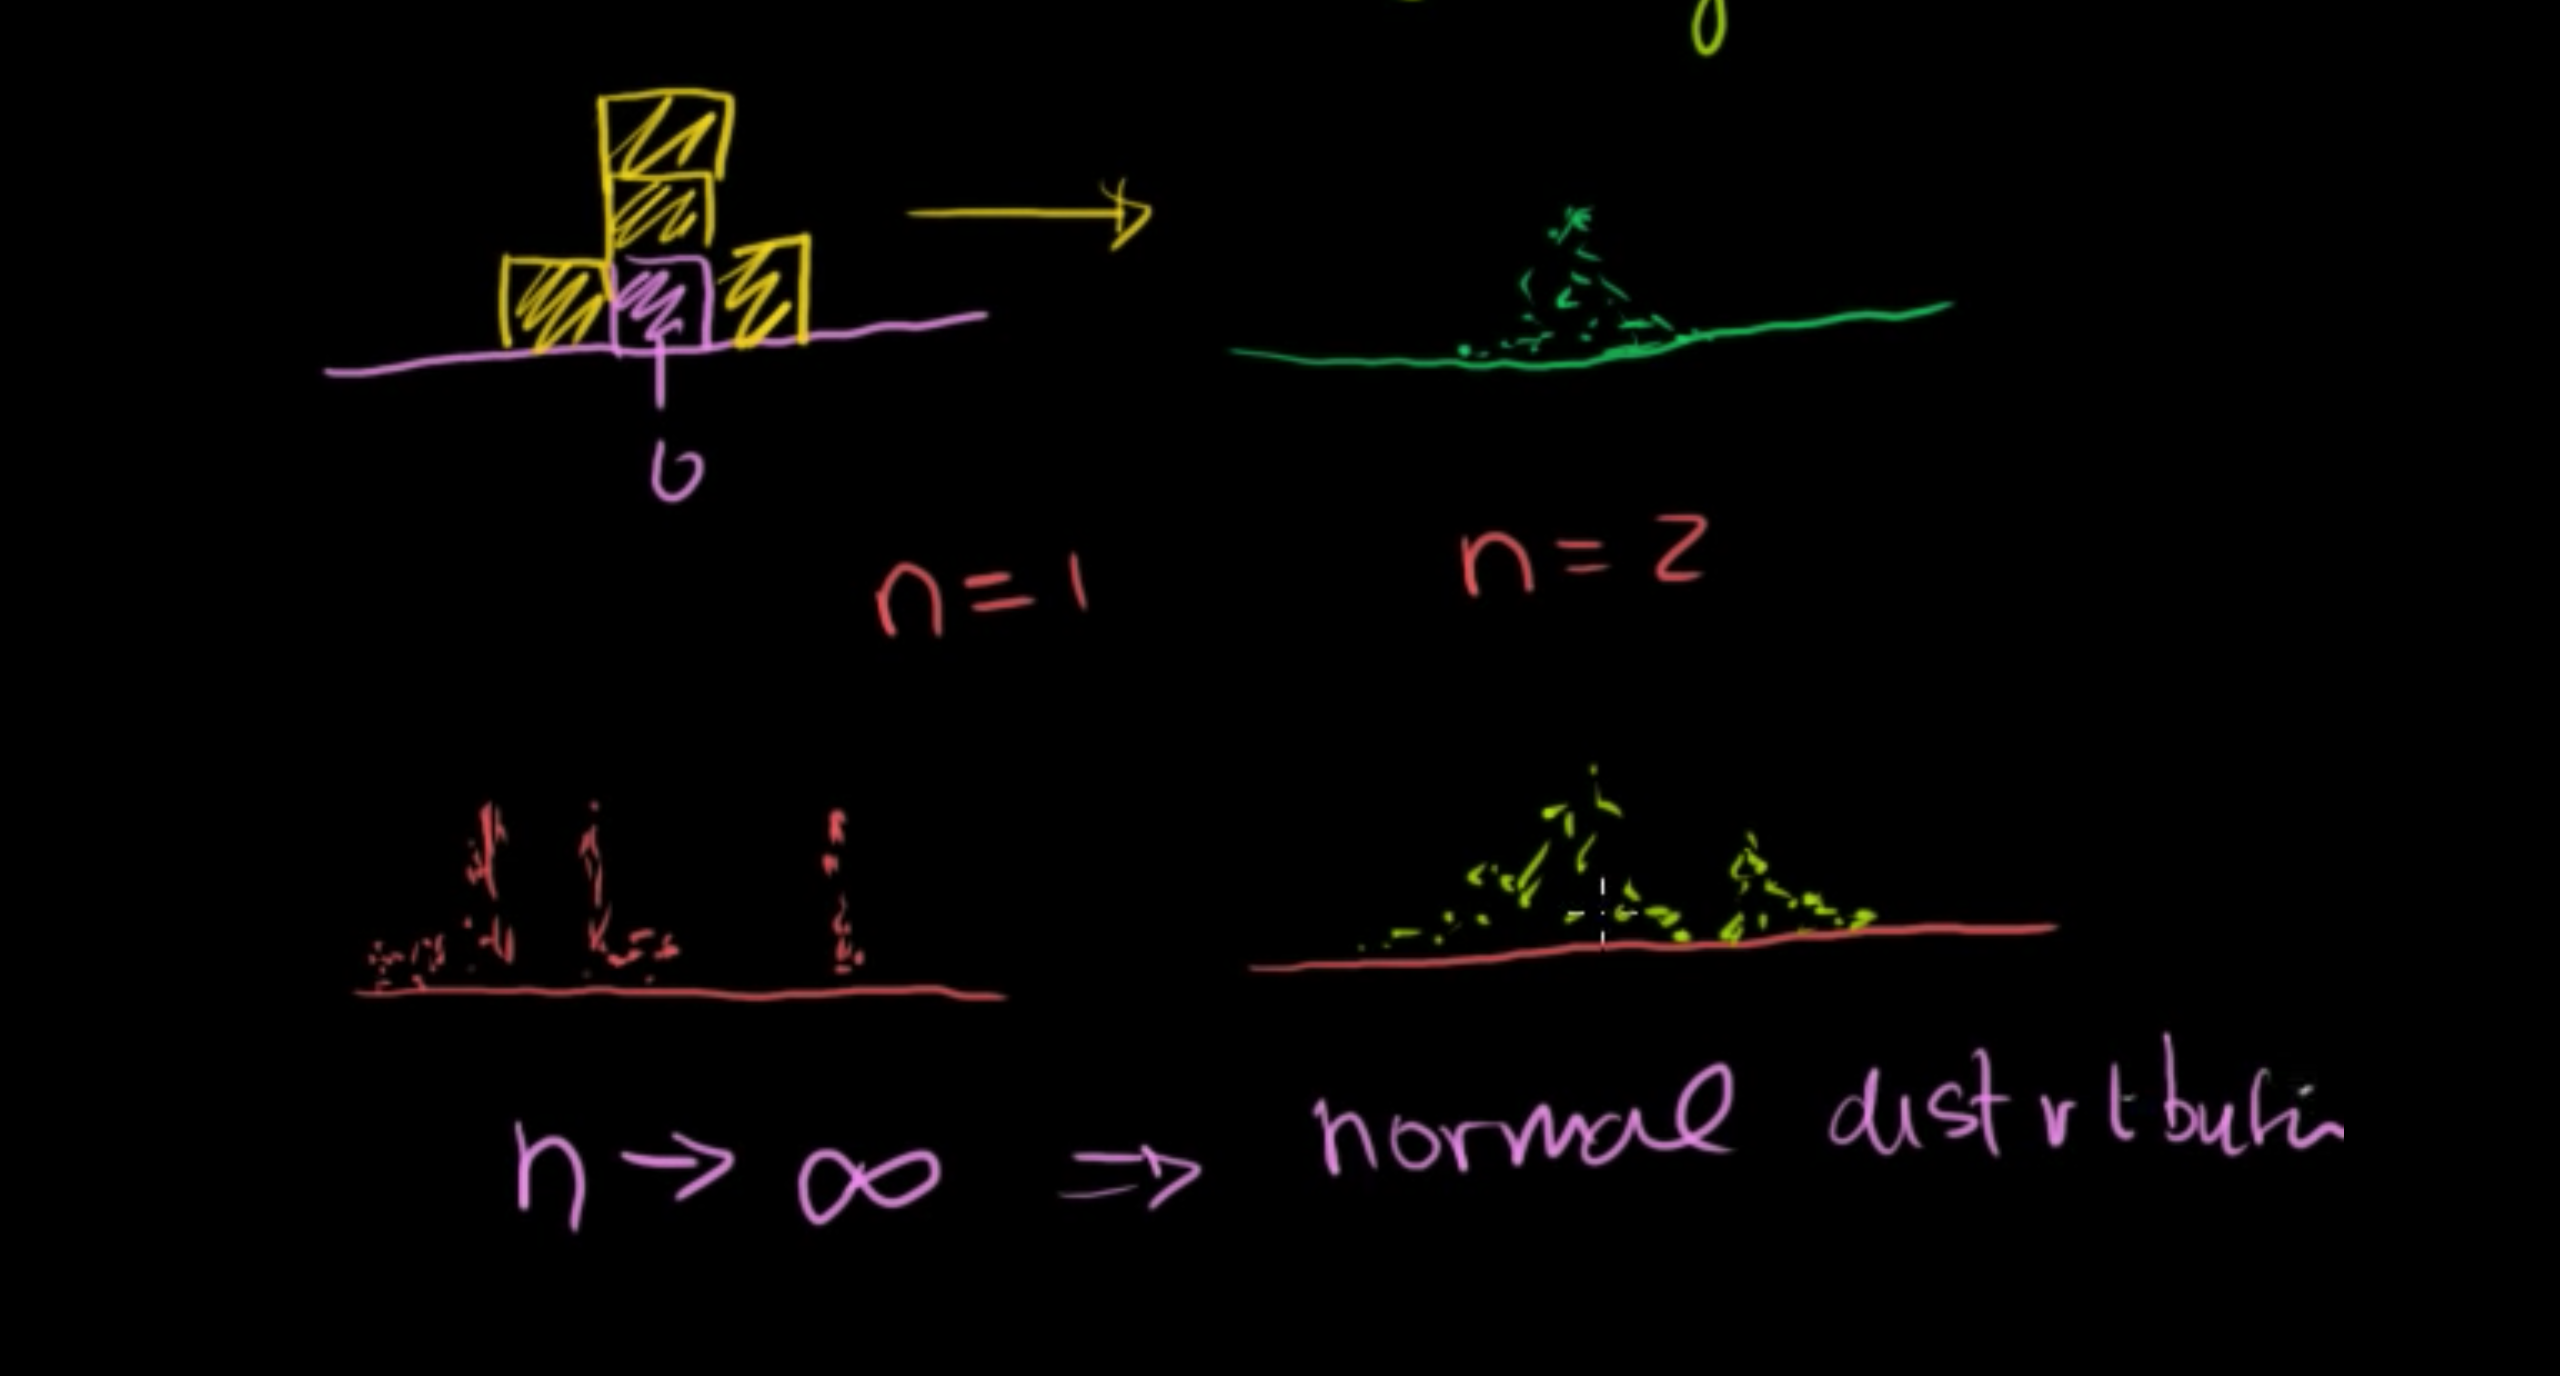 0
n = 1
n = 2
n → ∞ ⇒ normal distributin